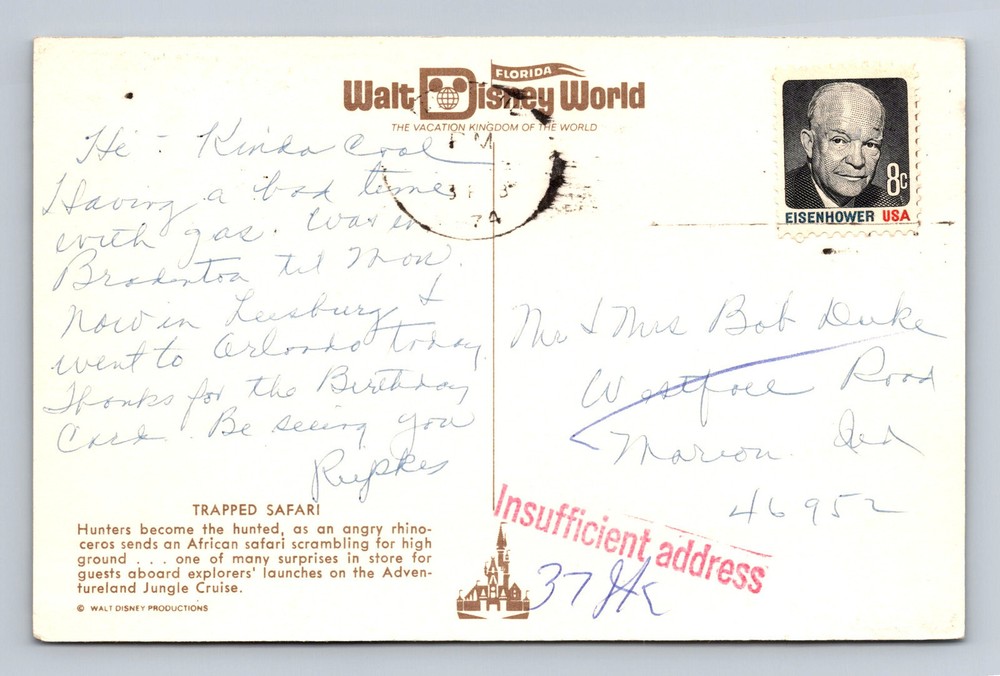 FLORIDA
Walt Disney World
THE VACATION KINGDOM OF THE WORLD
PM
74
8c
EISENHOWER USA
Hi - Kinda Cool
Having a bad time
with gas. Was in
Bradenton til Mon.
Now in Leesburg &
went to Orlando today.
Thanks for the Birthday
Card. Be seeing you
Rupkes
Mr & Mrs Bob Duke
Road
Marion Ind
46952
Insufficient address
37
TRAPPED SAFARI
Hunters become the hunted, as an angry rhino-
ceros sends an African safari scrambling for high
ground . . . one of many surprises in store for
guests aboard explorers' launches on the Adven-
tureland Jungle Cruise.
© WALT DISNEY PRODUCTIONS